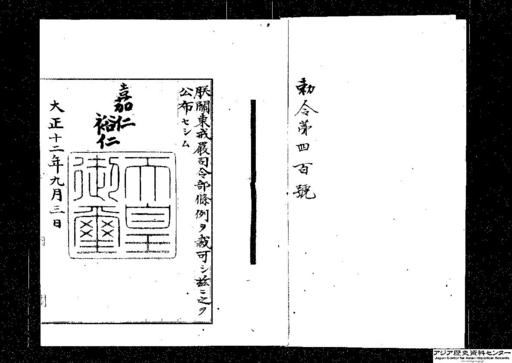 勅令第四百號
朕關東戒嚴司令部條例ヲ裁可シ茲ニ之ヲ
公布セシム
嘉仁
裕仁
天皇
御璽
大正十二年九月三日
アジア歴史資料センター
Japan Center for Asian Historical Records